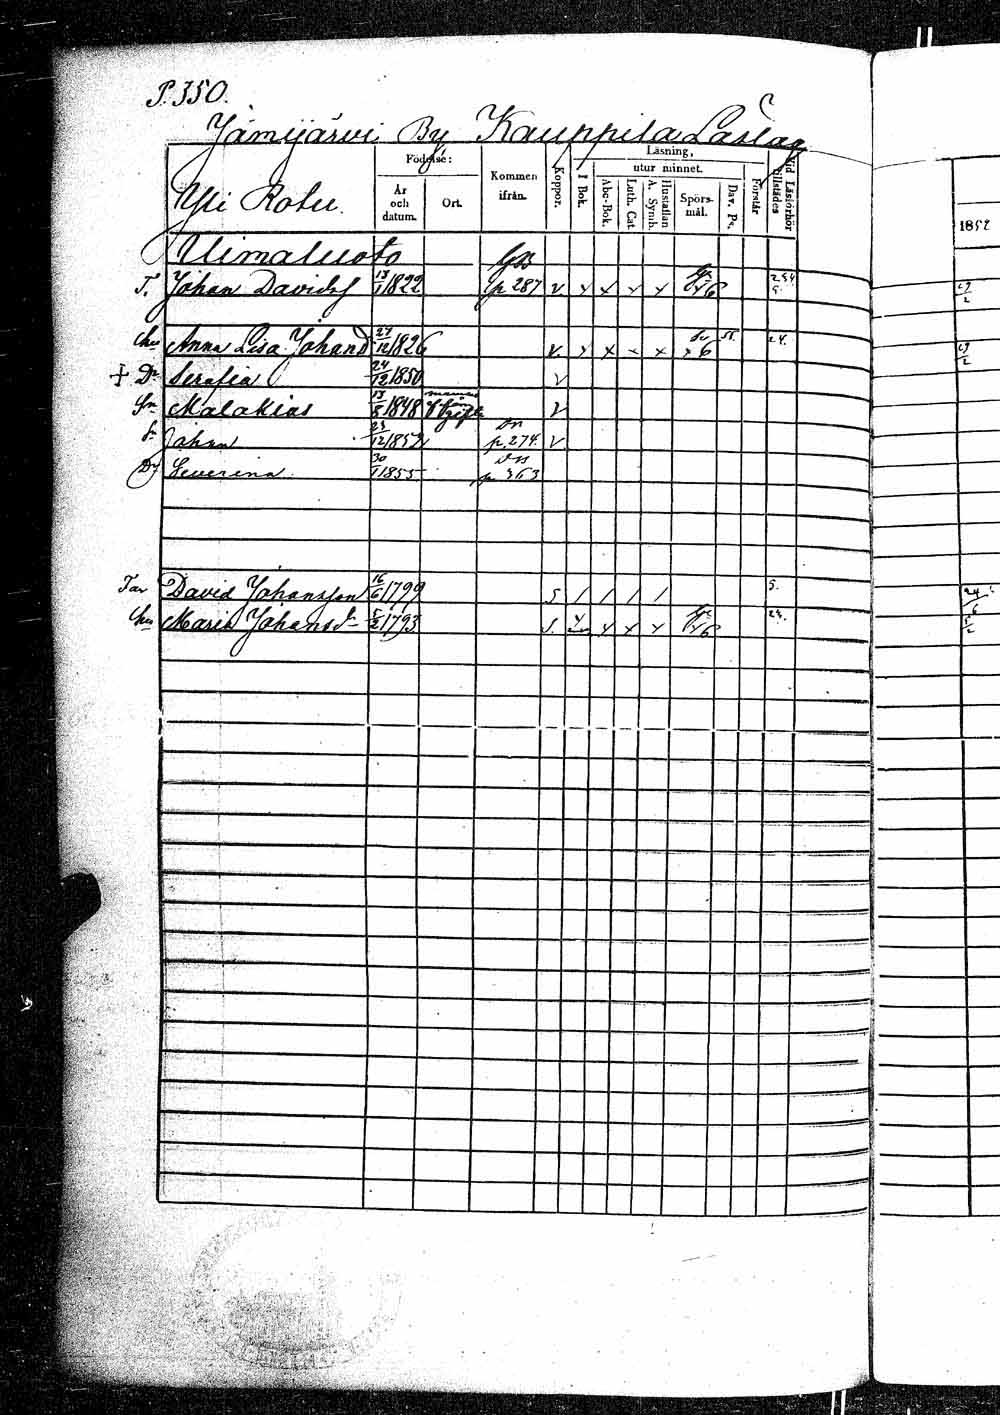 P. 350.
Jämijärvi By Kauppila Läslag
Födelse: Läsning,
utur minnet.
Yli Rotu. År och datum. Ort. Kommen ifrån. Koppor. I Bok. Abc-Bok. Luth. Cat. A. Symb. Hustaflan Spörs-mål. Dav. Ps. Förstår Vid Läsförhör tillstädes
1852
Uimaluoto
T. Johan Davids 13/1 1822 p 287 v x x x x x6
Anna Lisa Johansd 27/12 1826 v. x x x x x6 24.
+ Dr Serafia 24/12 1850 v
Sn Malakias 13/8 1848 v
Johan 23/12 1852 p. 274. v.
Dr Severina 30/1 1855 p 363
Far David Johansson 16/6 1799 s / / / / 5.
Maria Johansd 5/2 1793 s. x x x x x6 24.